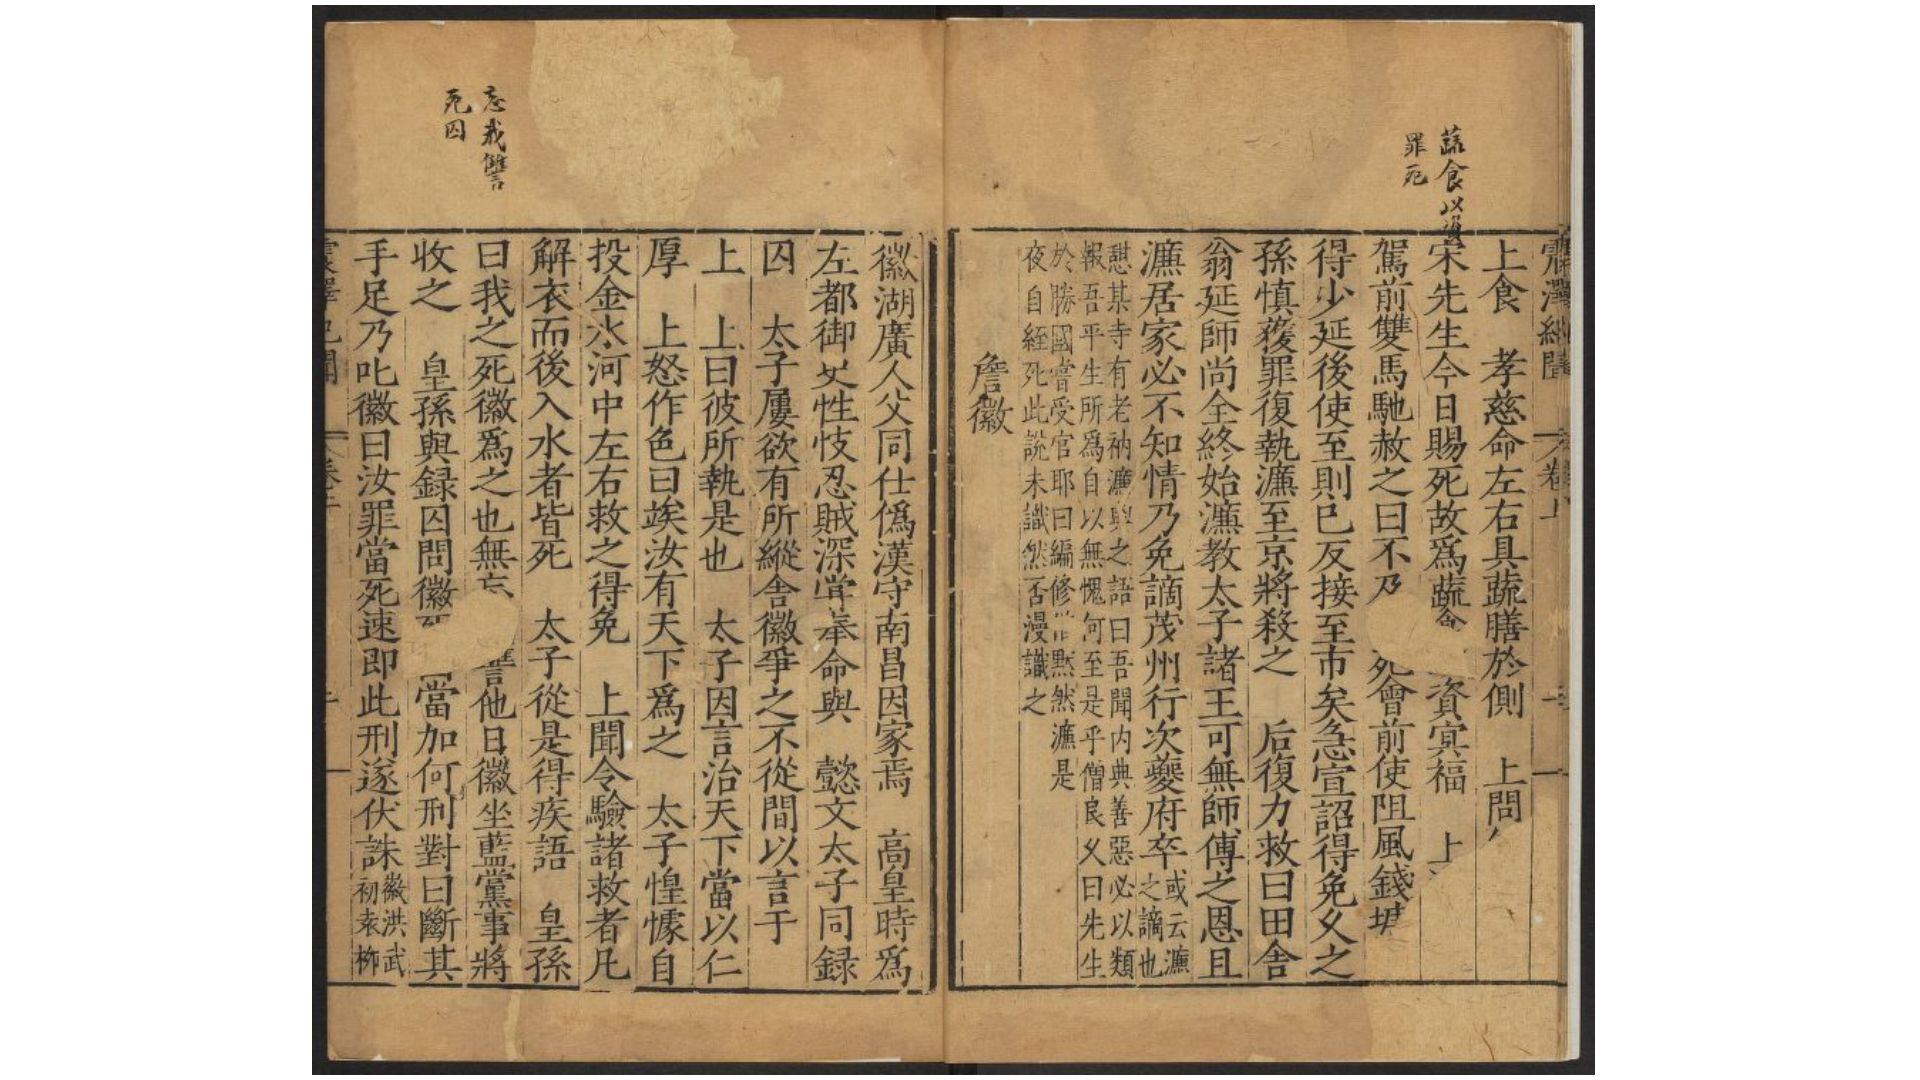 蔬食以資
罪死
震澤紀聞 卷上
上食 孝慈命左右具蔬膳於側 上問
宋先生今日賜死故爲蔬食 資冥福 上
駕前雙馬馳赦之曰不乃 死會前使阻風錢塘
得少延後使至則已反接至市矣急宣詔得免久之
孫慎獲罪復執濂至京將殺之 后復力救曰田舍
翁延師尚全終始濂教太子諸王可無師傅之恩且
濂居家必不知情乃免謫茂州行次夔府卒
或云濂
之謫也
憇某寺有老衲濂與之語曰吾聞内典善惡必以類
報吾平生所爲自以無愧何至是乎僧良久曰先生
於勝國嘗受官耶曰編修 默然濂是
夜自經死此說未識然否漫識之
詹徽
忘我讐
死囚
徽湖廣人父同仕僞漢守南昌因家焉 高皇時爲
左都御史性忮忍賊深嘗奉命與 懿文太子同録
囚 太子屢欲有所縱舍徽爭之不從間以言于
上 上曰彼所執是也 太子因言治天下當以仁
厚 上怒作色曰竢汝有天下爲之 太子惶懅自
投金水河中左右救之得免 上聞令驗諸救者凡
解衣而後入水者皆死 太子從是得疾語 皇孫
曰我之死徽爲之也無忘 讐他日徽坐藍黨事將
收之 皇孫與録囚問徽死 當加何刑對曰斷其
手足乃叱徽曰汝罪當死速即此刑遂伏誅
徽洪武
初袁柳
震澤紀聞 卷上